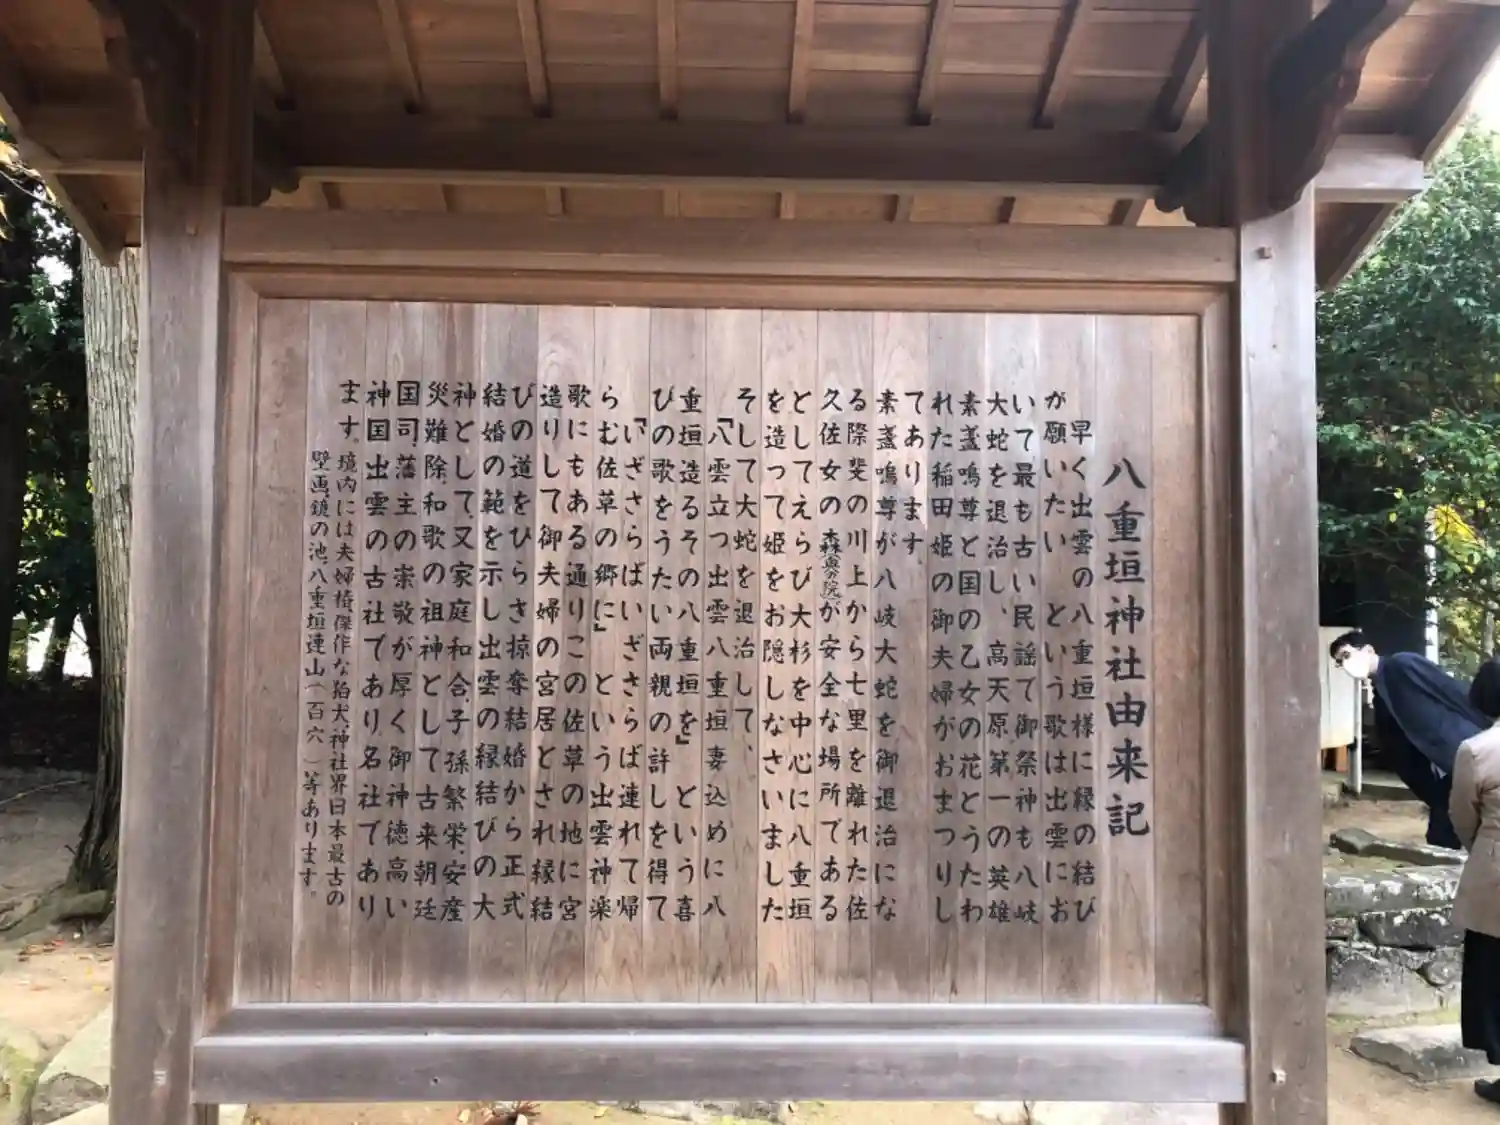 八重垣神社由来記
早く出雲の八重垣様に縁の結び
が願いたい という歌は出雲にお
いて最も古い民謡で御祭神も八岐
大蛇を退治し、高天原第一の英雄
素盞嗚尊と国の乙女の花とうたわ
れた稲田姫の御夫婦がおまつりし
てあります。
素盞嗚尊が八岐大蛇を御退治にな
る際斐の川上から七里を離れた佐
久佐女の森(奥の院)が安全な場所である
としてえらび大杉を中心に八重垣
を造って姫をお隠しなさいました
そして大蛇を退治して、
「八雲立つ出雲八重垣妻込めに八
重垣造るその八重垣を」という喜
びの歌をうたい両親の許しを得て
「いざさらばいざさらば連れて帰
らむ佐草の郷に」という出雲神楽
歌にもある通りこの佐草の地に宮
造りして御夫婦の宮居とされ縁結
びの道をひらき掠奪結婚から正式
結婚の範を示し出雲の縁結びの大
神として、又家庭和合、子孫繁栄、安産
災難除、和歌の祖神として古来朝廷
国司、藩主の崇敬が厚く御神徳高い
神国出雲の古社であり名社であり
ます。境内には夫婦椿、傑作な狛犬、神社界日本最古の
壁画、鏡の池、八重垣連山(百穴)等あります。